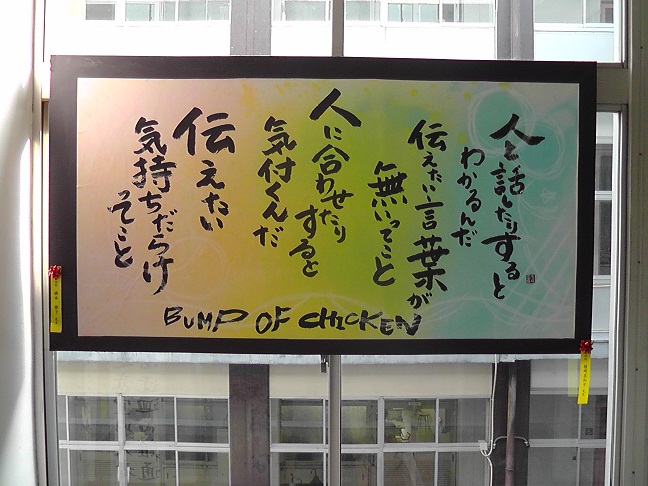 人と話したりすると
わかるんだ
伝えたい言葉が
無いってこと
人に合わせたり
すると
気付くんだ
伝えたい
気持ちだらけ
ってこと
BUMP OF CHICKEN